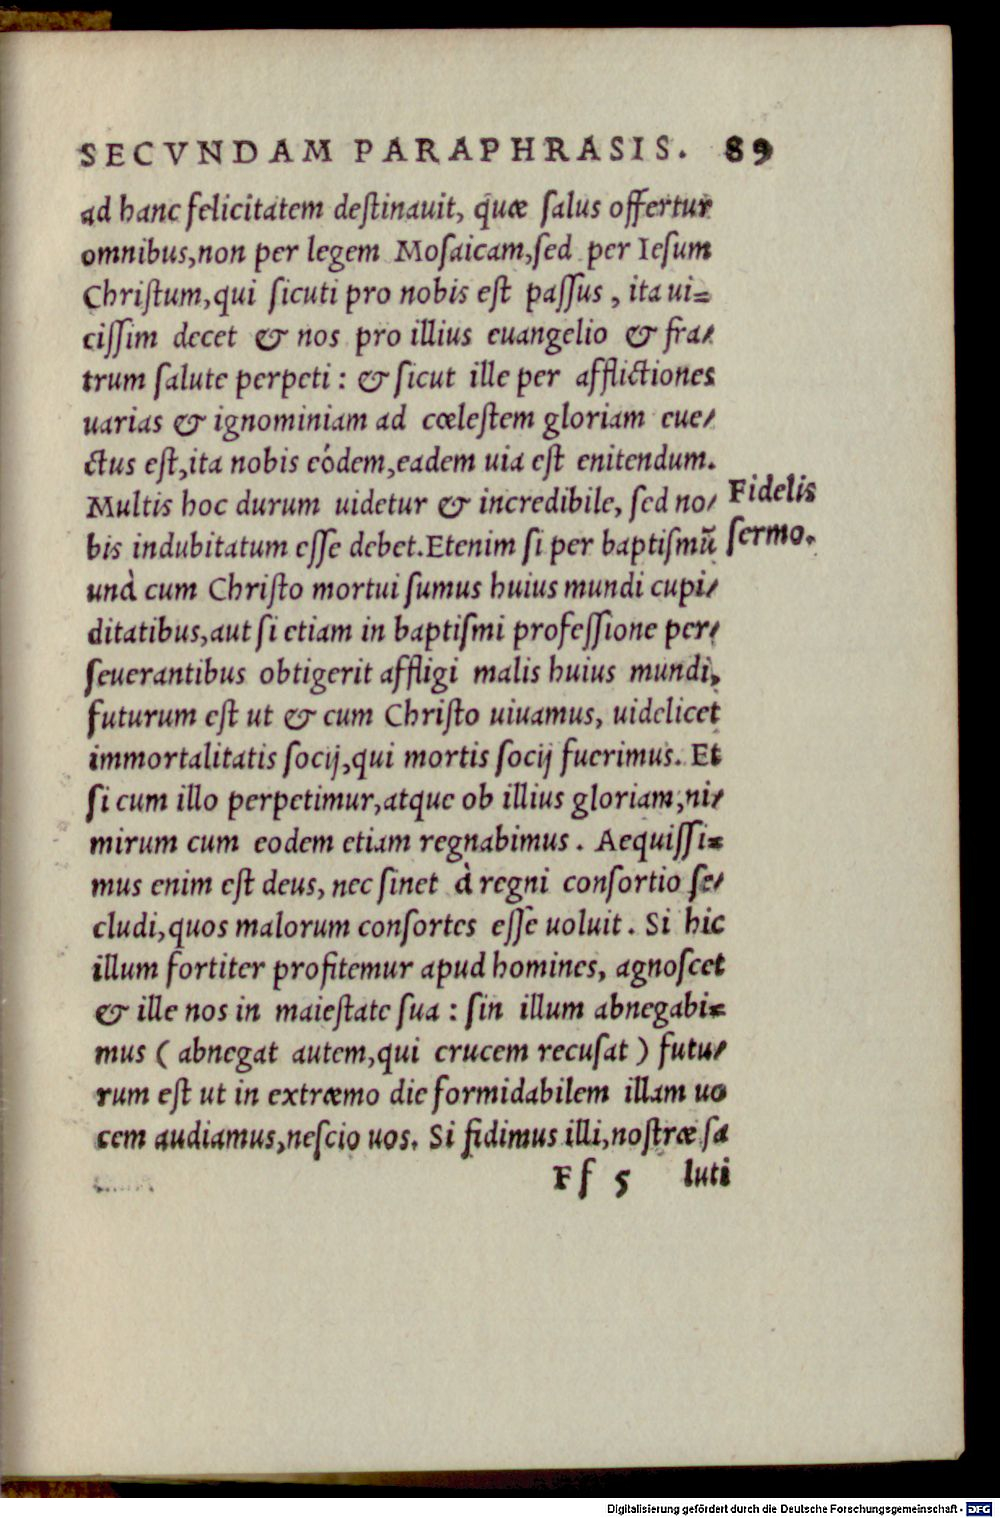 SECVNDAM PARAPHRASIS. 89
ad hanc felicitatem deſtinauit, quæ ſalus offertur
omnibus,non per legem Moſaicam,ſed per Ieſum
Chriſtum,qui ſicuti pro nobis eſt paſſus , ita ui=
ciſſim decet & nos pro illius euangelio & fra/
trum ſalute perpeti : & ſicut ille per afflictiones
uarias & ignominiam ad cœleſtem gloriam eue/
ctus eſt,ita nobis eódem,eadem uia eſt enitendum.
Multis hoc durum uidetur & incredibile, ſed no/
Fidelis
bis indubitatum eſſe debet.Etenim ſi per baptiſmũ
ſermo.
unà cum Chriſto mortui ſumus huius mundi cupi/
ditatibus,aut ſi etiam in baptiſmi profeſſione per/
ſeuerantibus obtigerit affligi malis huius mundi,
futurum eſt ut & cum Chriſto uiuamus, uidelicet
immortalitatis ſocij,qui mortis ſocij fuerimus. Et
ſi cum illo perpetimur,atque ob illius gloriam,ni/
mirum cum eodem etiam regnabimus . Aequiſſi=
mus enim eſt deus, nec ſinet à regni conſortio ſe/
cludi,quos malorum conſortes eſſe uoluit . Si hic
illum fortiter profitemur apud homines, agnoſcet
& ille nos in maieſtate ſua : ſin illum abnegabi=
mus ( abnegat autem,qui crucem recuſat ) futu/
rum eſt ut in extræmo die formidabilem illam uo
cem audiamus,neſcio uos. Si fidimus illi,noſtræ ſa
Ff 5 luti
Digitalisierung gefördert durch die Deutsche Forschungsgemeinschaft - DFG